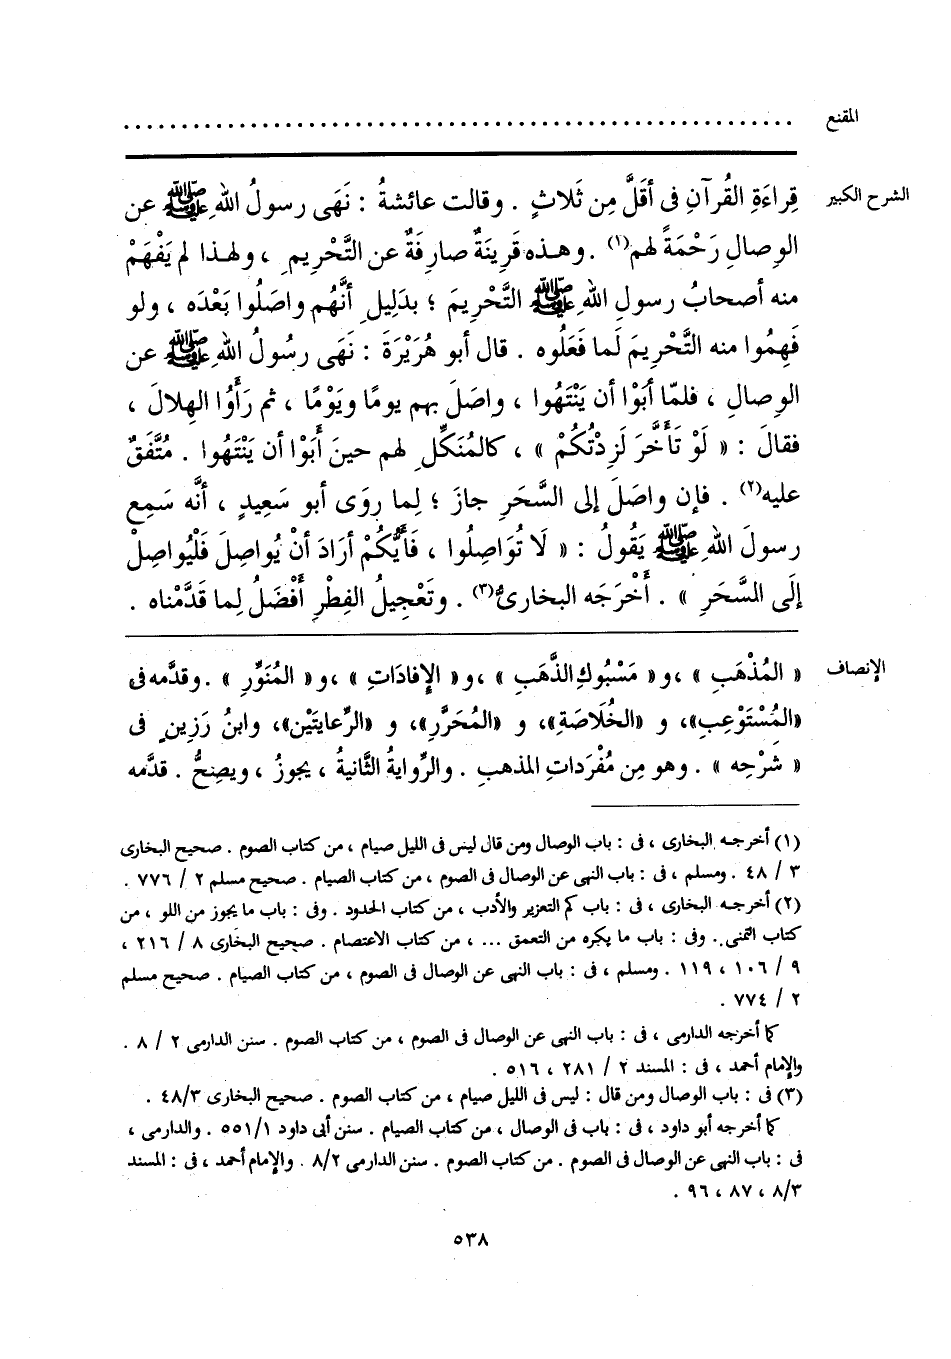 المقنع ........................................................
الشرح الكبير قِراءَةِ القُرآنِ فى أقَلَّ مِن ثَلاثٍ . وقالت عائشةُ : نَهَى رسولُ اللهِ ﷺ عن
الوِصالِ رَحْمَةً لهم(١) . وهذه قَرِينَةٌ صارِفَةٌ عن التَّحْرِيمِ ، ولهذا لم يَفْهَمْ
منه أصحابُ رسولِ اللهِ ﷺ التَّحْرِيمَ ؛ بدَلِيلِ أنَّهُم واصَلُوا بَعْدَه ، ولو
فَهِمُوا منه التَّحْرِيمَ لَما فَعَلُوه . قال أبو هُرَيْرَةَ : نَهَى رسُولُ اللهِ ﷺ عن
الوِصالِ ، فلمّا أبَوْا أن يَنْتَهُوا ، واصَلَ بهم يومًا ويَوْمًا ، ثم رَأَوُا الهِلالَ ،
فقالَ : « لَوْ تَأَخَّرَ لَزِدْتُكُمْ » ، كالمُنَكِّلِ لهم حينَ أبَوْا أن يَنْتَهُوا . مُتَّفَقٌ
عليه(٢) . فإن واصَلَ إلى السَّحَرِ جازَ ؛ لِما روَى أبو سَعِيدٍ ، أنَّه سَمِع
رسولَ اللهِ ﷺ يَقُولُ : « لَا تُوَاصِلُوا ، فَأَيُّكُمْ أرَادَ أنْ يُواصِلَ فَلْيُواصِلْ
إلَى السَّحَرِ » . أخْرَجَه البخارىُّ(٣) . وتَعْجِيلُ الفِطْرِ أفْضَلُ لِما قَدَّمْناه .
الإنصاف « المُذْهَبِ » ، و « مَسْبُوكِ الذَّهَبِ » ، و « الإفادَاتِ » ، و « المُنَوِّرِ » . وقدَّمه فى
«المُسْتَوْعِبِ»، و «الخُلَاصَةِ»، و «المُحَرَّرِ»، و «الرِّعايتَيْن»، وابنُ رَزِينٍ فى
« شَرْحِه » . وهو مِن مُفْرَداتِ المذهبِ . والرِّوايةُ الثَّانيةُ ، يجوزُ ، ويصِحُّ . قدَّمه
(١) أخرجه البخارى ، فى : باب الوصال ومن قال ليس فى الليل صيام ، من كتاب الصوم . صحيح البخارى
٣ / ٤٨ . ومسلم ، فى : باب النهى عن الوصال فى الصوم ، من كتاب الصيام . صحيح مسلم ٢ / ٧٧٦ .
(٢) أخرجه البخارى ، فى : باب كم التعزير والأدب ، من كتاب الحدود . وفى : باب ما يجوز من اللو ، من
كتاب التمنى . وفى : باب ما يكره من التعمق ... ، من كتاب الاعتصام . صحيح البخارى ٨ / ٢١٦ ،
٩ / ١٠٦ ، ١١٩ . ومسلم ، فى : باب النهى عن الوصال فى الصوم ، من كتاب الصيام . صحيح مسلم
٢ / ٧٧٤ .
كما أخرجه الدارمى ، فى : باب النهى عن الوصال فى الصوم ، من كتاب الصوم . سنن الدارمى ٢ / ٨ .
والإمام أحمد ، فى : المسند ٢ / ٢٨١ ، ٥١٦ .
(٣) فى : باب الوصال ومن قال : ليس فى الليل صيام ، من كتاب الصوم . صحيح البخارى ٤٨/٣ .
كما أخرجه أبو داود ، فى : باب فى الوصال ، من كتاب الصيام . سنن أبى داود ٥٥١/١ . والدارمى ،
فى : باب النهى عن الوصال فى الصوم . من كتاب الصوم . سنن الدارمى ٨/٢ . والإمام أحمد ، فى : المسند
٨/٣ ، ٨٧ ، ٩٦ .
٥٣٨